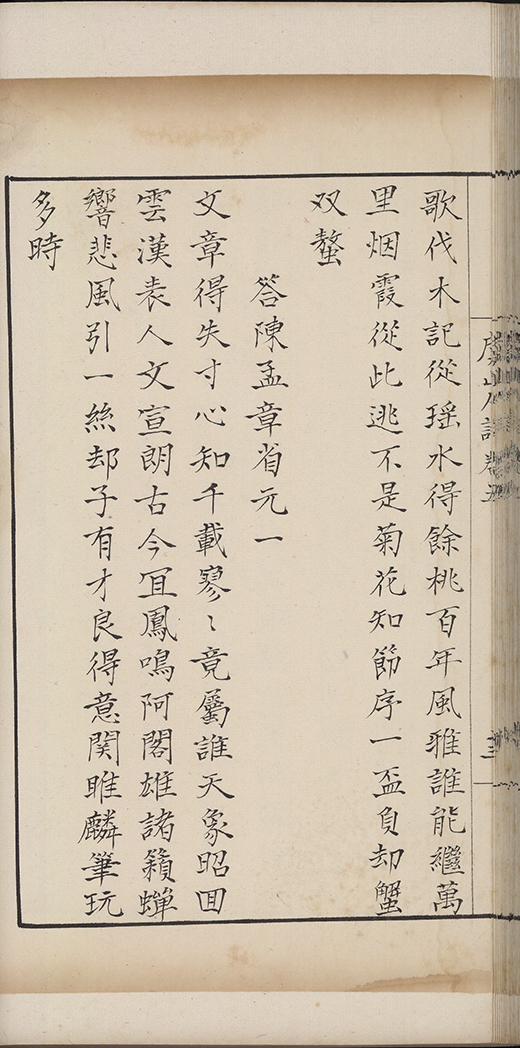 歌伐木記從瑶水得餘桃百年風雅誰能繼萬
里烟霞從此逃不是菊花知節序一盃負却蟹
双螯
答陳孟章省元一
文章得失寸心知千載寥〻竟屬誰天象昭回
雲漢表人文宣朗古今冝鳳鳴阿閣雄諸籟蟬
響悲風引一絲却子有才良得意関雎麟筆玩
多時